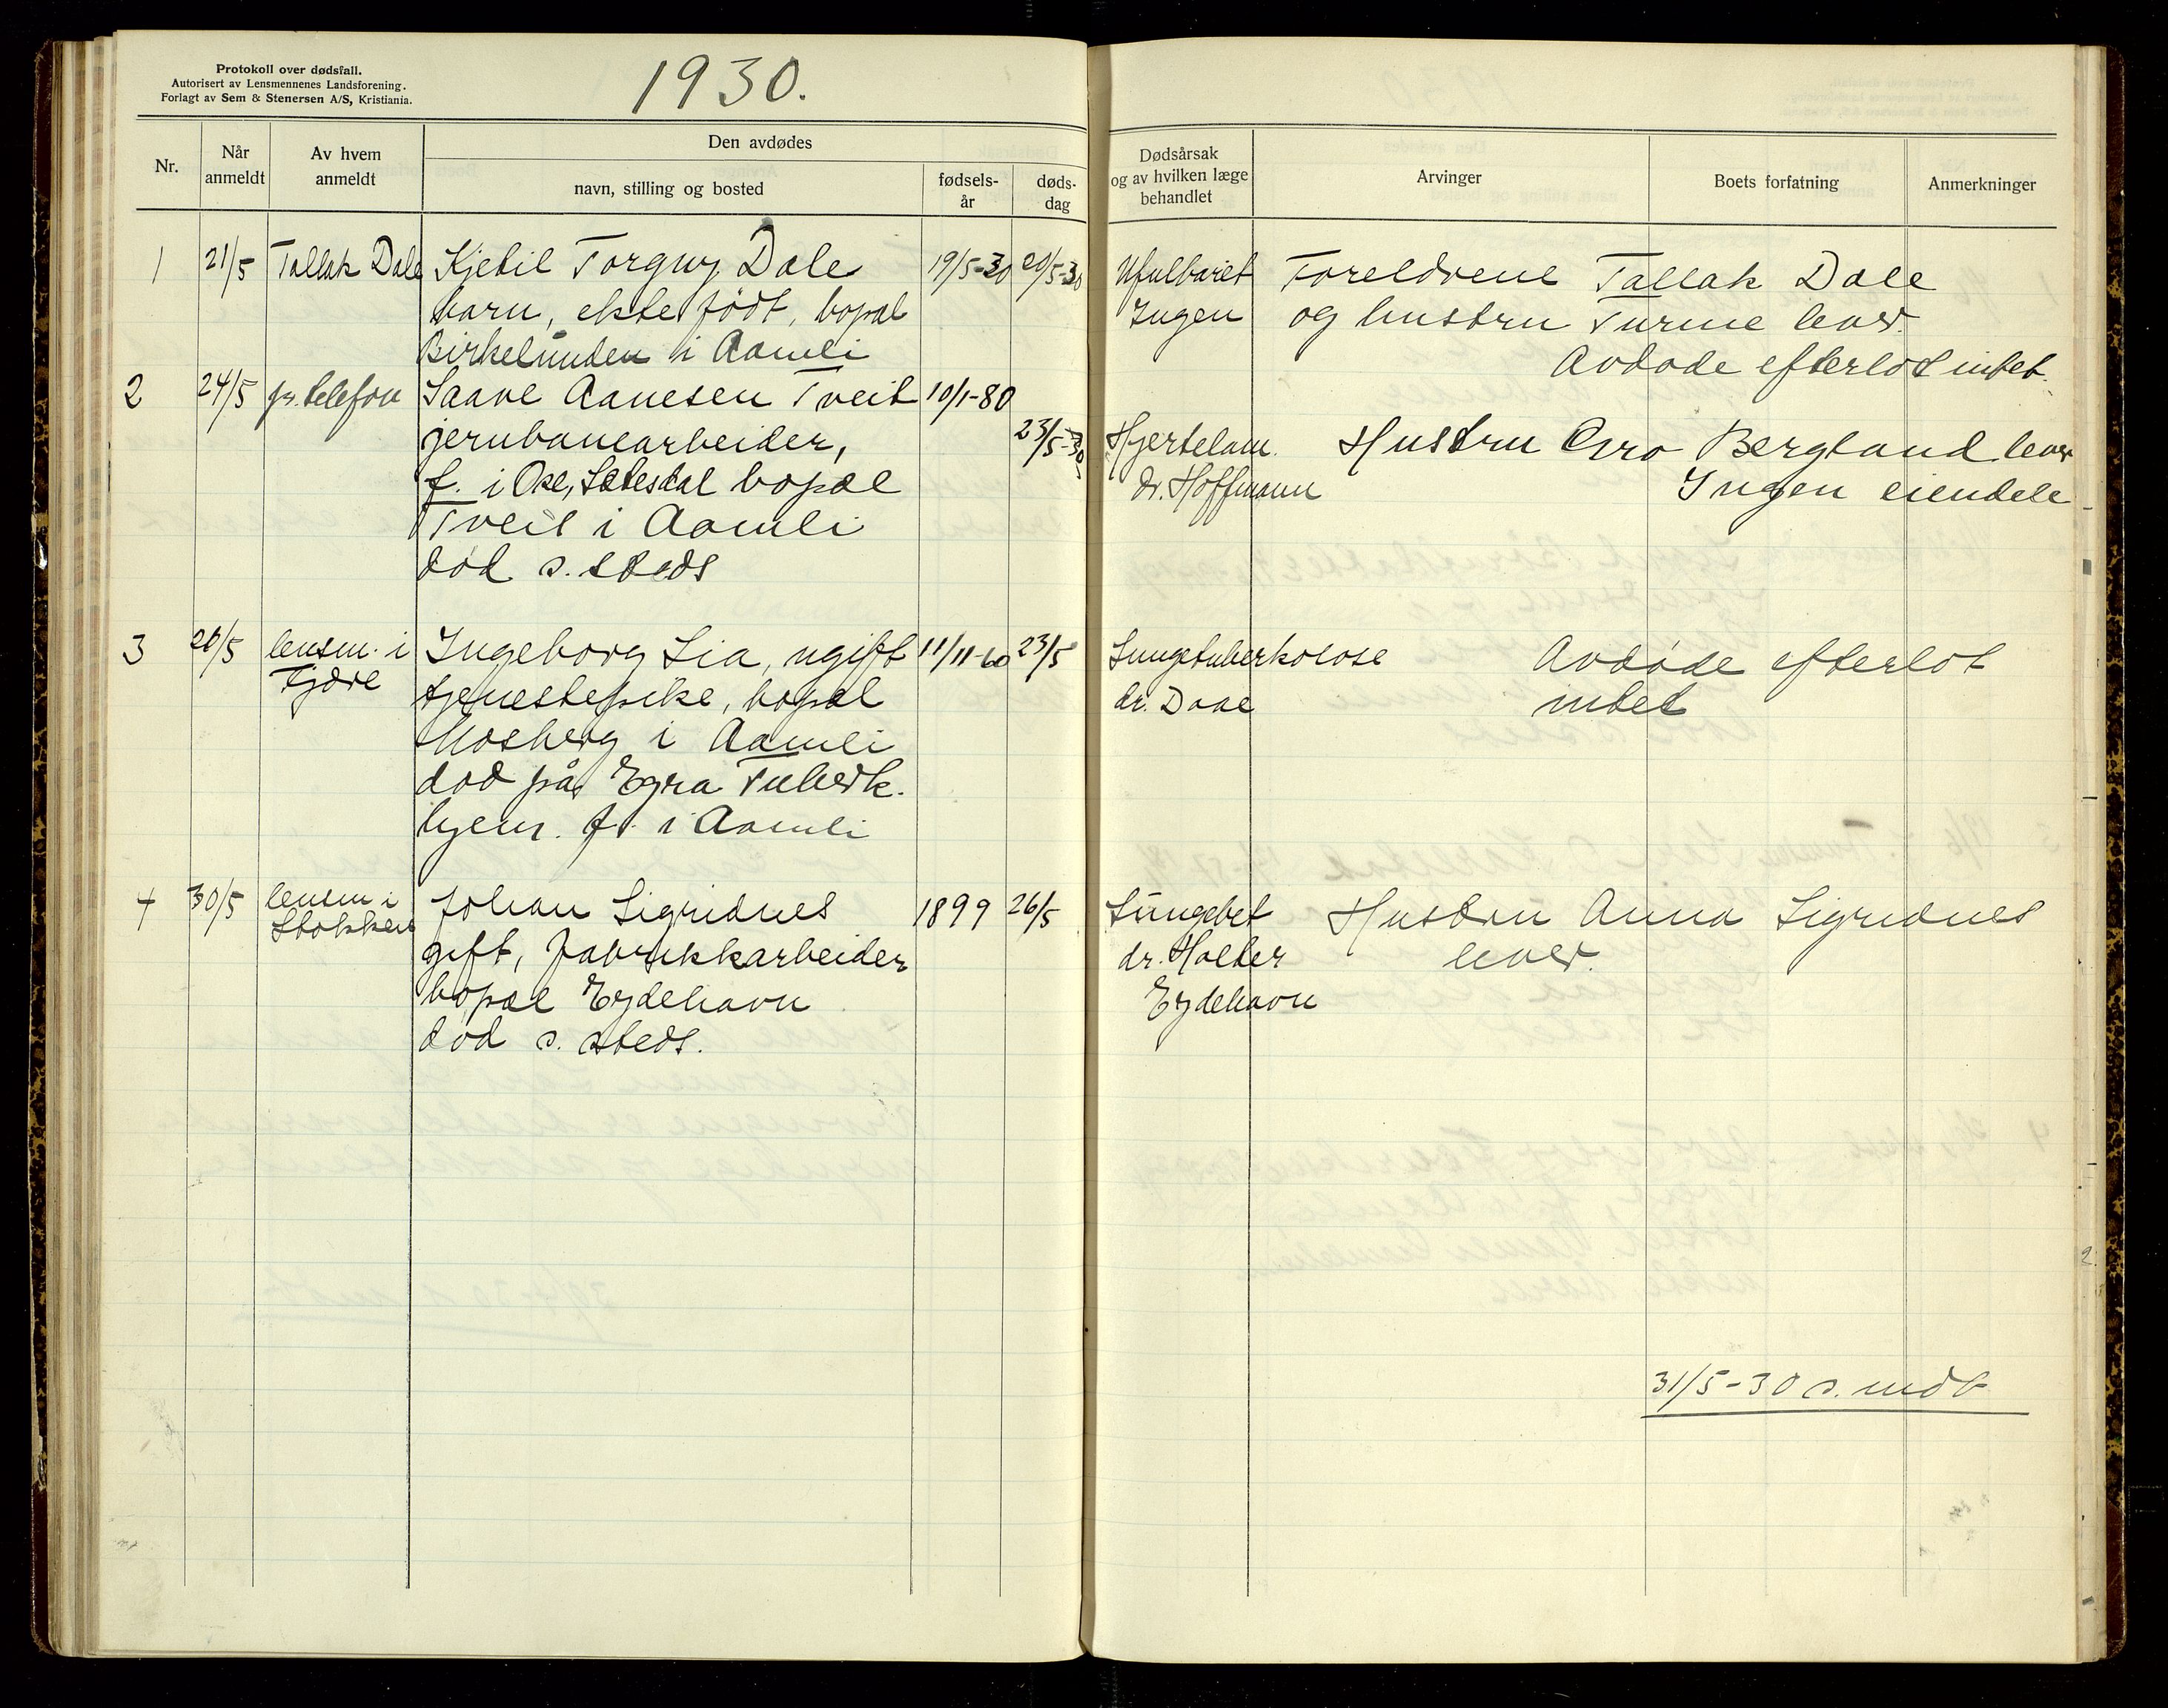 Protokoll over dødsfall.
Autorisert av Lensmennenes Landsforening.
Forlagt av Sem & Stenersen A/S, Kristiania.
1930.
Nr.
Når anmeldt
Av hvem anmeldt
Den avdødes
navn, stilling og bosted
fødsels-år
døds-dag
Dødsårsak
og av hvilken læge
behandlet
Arvinger
Boets forfatning
Anmerkninger
1 21/5 Tallak Dale Kjetil Torguy Dale 19/5-30 20/5-30 Ufulbaret Foreldrene Tallak Dale
barn, ekte født, bopæl Ingen og hustru Turine lever.
Birkelunden i Aamli Avdøde efterlot intet.
2 24/5 pr. telefon Saave Aanesen Tveit 10/1-80
jernbanearbeider, 23/5-30 Hjertelam. Hustru Gro Bergland lever
f. i Ose, Sætesdal bopæl dr. Hoffmann Ingen eiendele
Tveit i Aamli
død s. steds
3 26/5 lensm. i Ingeborg Lia, ugift 11/11-60 23/5 Lungetuberkolose Avdøde efterlot
Fjære tjenestepike, bopæl dr. Daae intet
Mosberg i Aamli
død på Egra Tuberk.
hjem. f. i Aamli
4 30/5 lensm i Johan Sigridnes 1899 26/5 Lungebet Hustru Anna Sigridnes
Stokken gift, fabrikkarbeider dr. Holter lever.
bopæl Eydehavn Eydehavn
død s. steds.
31/5-30 s. mdt